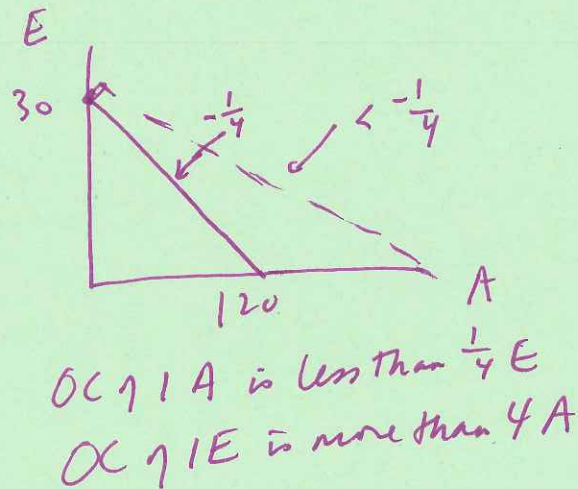 E
30
-1/4
< -1/4
120
A
OC of 1 A is less than 1/4 E
OC of 1E is more than 4 A